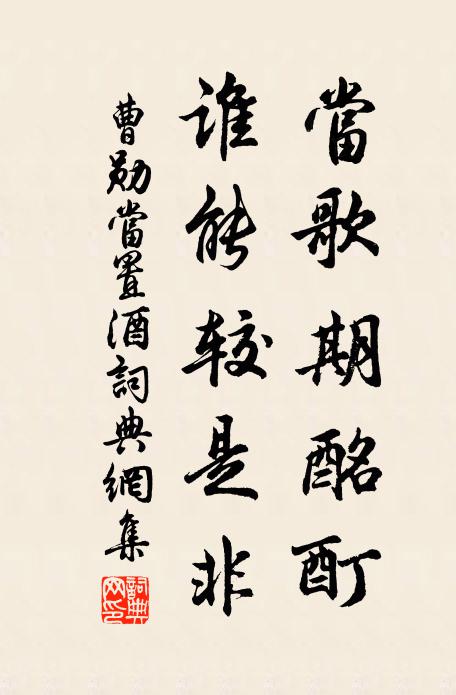 當歌期酩酊
誰能较是非
曹勛當置酒詞典網集
詞典网印